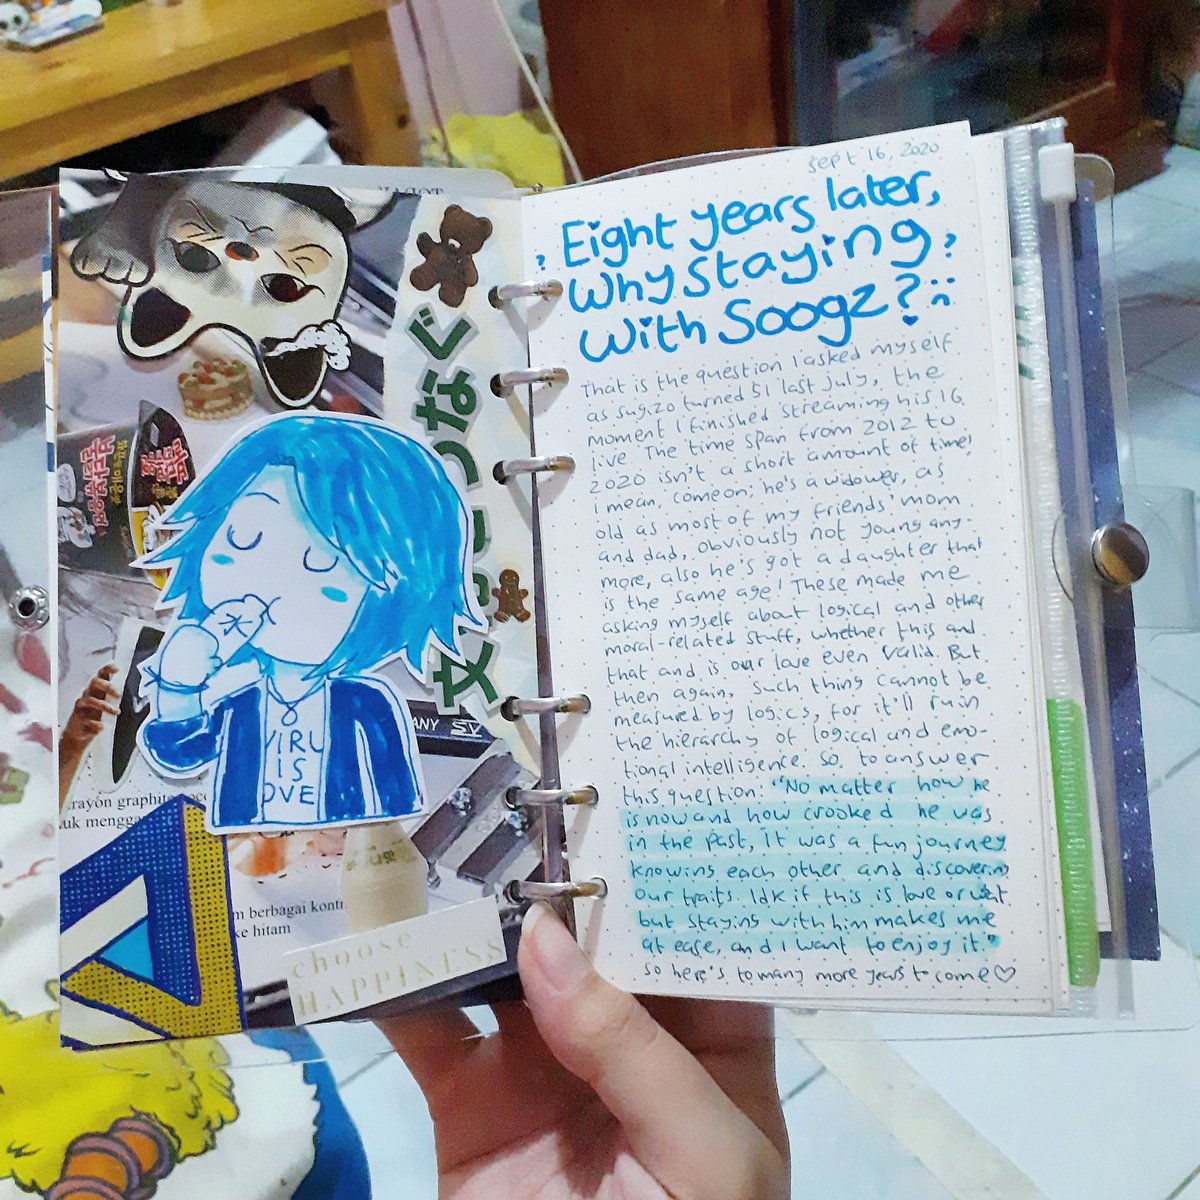 つなぐ
YIRU
IS
OVE
ANY SV
rayon graphit
uk mengga
berbagai kontr
ke hitam
choose
HAPPINESS
Sept 16, 2020
? Eight years later,
Why staying ?
With Soogz? :(
That is the question I asked myself
as Sugizo turned 51 last July, the
moment I finished streaming his 16
live. The time span from 2012 to
2020 isn't a short amount of time,
I mean. Come on; he's a widower, as
old as most of my friends' mom
and dad, obviously not young any-
more, also he's got a daughter that
is the same age! These made me
asking myself about logical and other
moral-related stuff, whether this and
that and is our love even valid. But
then again, such thing cannot be
measured by logics, for it'll ruin
the hierarchy of logical and emo-
tional intelligence. So, to answer
this question: "No matter how he
is now and how crooked he was
in the past, It was a fun journey
knowing each other and discovering
our traits. Idk if this is love or what
but staying with him makes me
at ease, and I want to enjoy it."
So here's to many more years to come♡